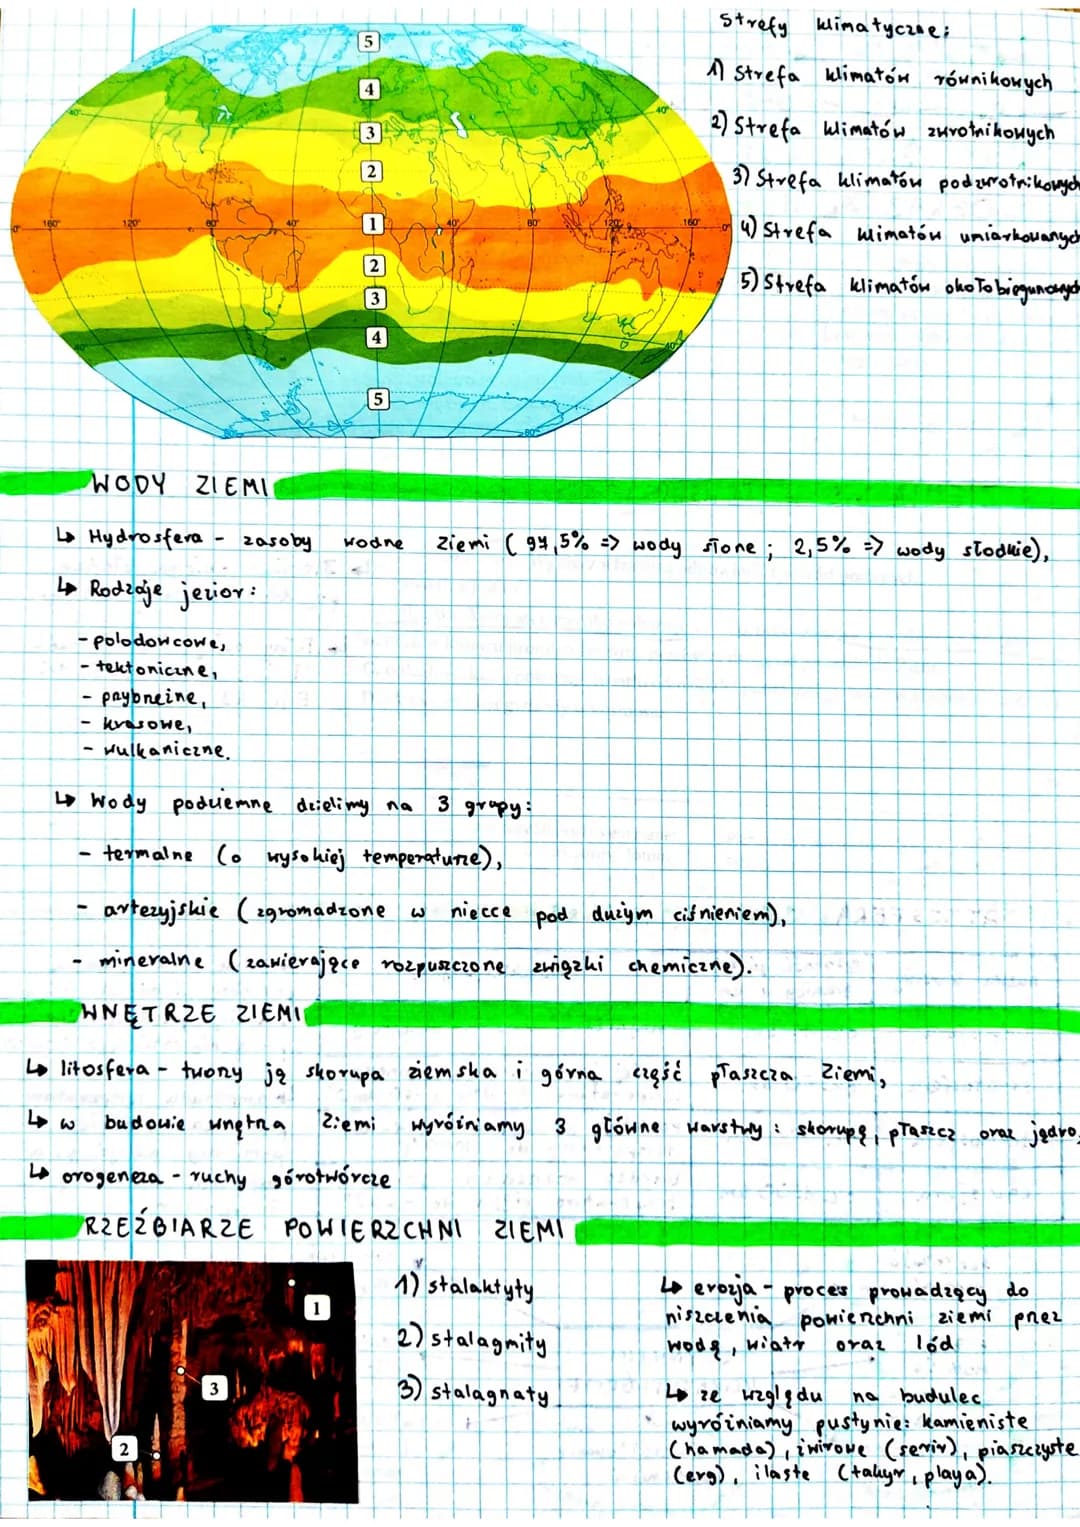 Strefy klimatyczne:
1) Strefa klimatów równikowych
2) Strefa klimatów zwrotnikowych
3) Strefa klimatów podzwrotnikowych
4) Strefa klimatów umiarkowanych
5) Strefa klimatów okołobiegunowych
5
4
40°
40°
3
2
0°
160°
120°
80°
40°
1
40°
80°
120°
160°
0°
2
3
4
40°
40°
5
80°
80°
WODY ZIEMI
↳ Hydrosfera - zasoby wodne Ziemi (97,5% => wody słone; 2,5% => wody słodkie),
↳ Rodzaje jezior:
- polodowcowe,
- tektoniczne,
- przybrzeżne,
- krasowe,
- wulkaniczne.
↳ Wody podziemne dzielimy na 3 grupy:
- termalne (o wysokiej temperaturze),
- artezyjskie (zgromadzone w niecce pod dużym ciśnieniem),
- mineralne (zawierające rozpuszczone związki chemiczne).
WNĘTRZE ZIEMI
↳ litosfera - tworzy ją skorupa ziemska i górna część płaszcza Ziemi,
↳ w budowie wnętrza Ziemi wyróżniamy 3 główne warstwy: skorupę, płaszcz oraz jądro,
↳ orogeneza - ruchy górotwórcze
RZEŹBIARZE POWIERZCHNI ZIEMI
1
3
2
1) stalaktyty
2) stalagmity
3) stalagnaty
↳ erozja - proces prowadzący do
niszczenia powierzchni ziemi przez
wodę, wiatr oraz lód
↳ ze względu na budulec
wyróżniamy pustynie: kamieniste
(hamada), żwirowe (serir), piaszczyste
(erg), ilaste (takyr, playa).